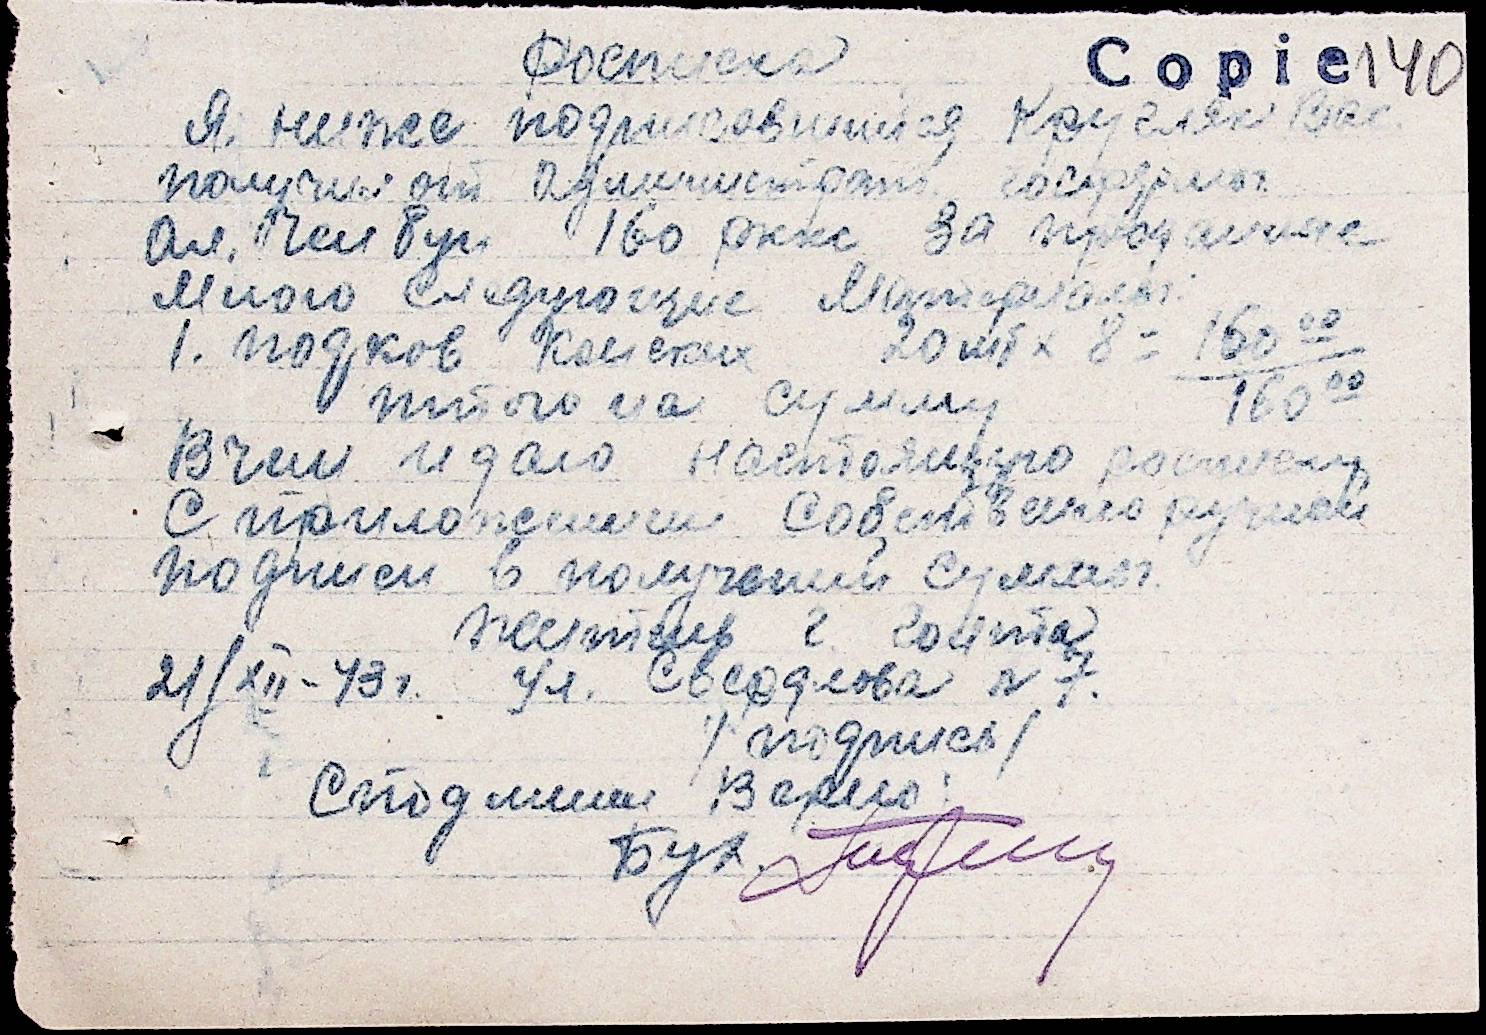 Росписка Copie 140
Я ниже подписавшийся Кругляк Вас.
получил от администрат. госфермы
Ал. Чеибун 160 рккс за проданные
мною следующие материалы:
1. подков конских 20 шт x 8 = 160 00
итого на сумму 160 00
В чем и даю настоящую росписку
С приложением собственноручной
подписи в получении суммы.
житель г. Голта
21/XII-43 г. ул. Свердлова № 7.
/подпись/
С подлинным верно:
Бух.